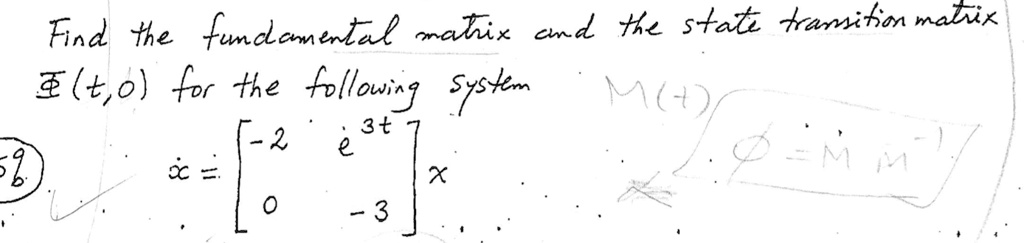 Find the fundamental matrix and the state transition matrix
Φ(t,0) for the following system
M(t)
ẋ = [ -2 e^{3t} ; 0 -3 ] x
φ = M M^{-1}